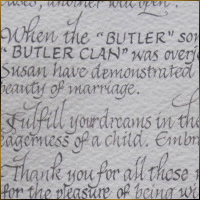 another will open.
When the "BUTLER" so
"BUTLER CLAN" was over
Susan have demonstrated
beauty of marriage.
Fulfill your dreams in the
eagerness of a child. Embr
Thank you for all those
for the pleasure of being wi